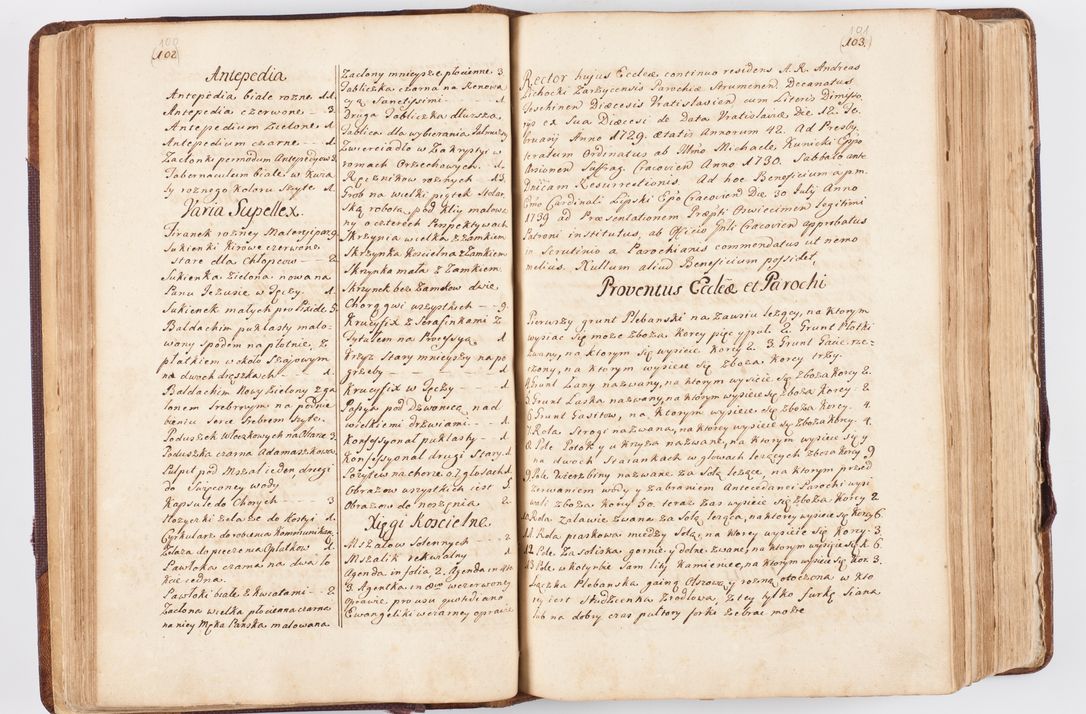 100
(102
Antepedia
Antepedia białe rożne 11.
Antepedia czerwone — 3.
Antepedium Zielone 1.
Antepedium czarne — 1.
Zaclonki permodum Antepedyow 3.
Tabernaculum białe w kwia
ty rożnego koloru szyte 1.
Varia Supellex.
Firanek rożney Materyi par 9
Sukienki Kirowe czerwone
Stare dla Chłopcow — 2
Sukienka Zielona nowa na
Panu Jezusie w Tęczy. 1.
Sukienek małych pro Pixide 5.
Baldachim puklasty malo-
wany spodem na płotnie, z
płatkiem w około
na dwoch drążkach — 1.
Baldachim Nowy Zielony z ga
lonem Srebrnym na podnie
bieniu Serce Srebrem Szyte.
Poduszek Włoczkowych na Ołtarze 3.
Poduszka czarna Adamaszkowa
Pulpit pod Mszał ieden, drugi
do Swięconey wody
Kapsułe do Chorych — 3
Nożyczki żelazne do Hostyi 1.
Cyrkularz do robienia Kommunikan
Żelaza do pieczenia Opłatkow 1.
Pawłoka czarna na dwa ło
kcie iedna.
Pawłoki białe z kwiatami — 2.
Zaclona wielka płocienna czarna
na niey Męka Pańska malowana
Zaclony mnieysze płocienne 3.
Tabliczka czarna na Renowa
cyą Sanctissimi — 1.
Druga Tabliczka dłuższa,
Tablica dla wybierania Jałmużny
Zwierciadło w Zakrystyi w
romach Orzechowych — 1.
Ręcznikow rożnych — 13.
Grob na wielki piątek Stolar
ską robotą, pod kliy malowa
ny o czterech Perspektywach
Skrzynia wielka z Zamkiem
Skrzynka Kościelna z Zamkiem
Skrzynka mała z Zamkiem
Skrzynek bez Zamkow dwie,
Chorągwi wszystkich — 9.
Krucyfix z Serafinkami z
Tytułem na Processyą — 1.
Krzyż Stary mnieyszy na po
grzeby — 1.
Krucyfix w Tęczy — 1.
Passya pod dzwonicą nad
wielkiemi drzwiami — 1.
Konfessyonał puklasty — 1.
Konfessyonał drugi Stary 1.
Pozytew na chorze o 7 głosach 1.
Obrazow wszystkich iest 5
Obrazow do noszenia 2.
Xięgi Kościelne.
Mszałow Solennych — 2
Mszalik rekwialny — 1
Agenda in folio 2. Agenda in 4to
3. Agentka in 8vo w czerwoney
oprawie pro usu quotidiano
Ewangeliki w czarney oprawie
101
(103.
Rector hujus Eccleæ continuo residens A. R. Andreas
Lichocki Zarzycensis Parochiæ Strumenen. Decanatus
Teschinen Diæcesis Vratislavien, cum Literis Dimisso-
rijs ex Sua Diæcesi de Data Vratislaviæ Die 12. Fe
bruarij Anno 1729. Ætatis Annorum 42. Ad Presby
teratum Ordinatus ab Illmo Michaele Kunicki Eppo
Arsionen Suffrag. Cracovien Anno 1730. Sabbato ante
Dnicam Resurrectionis. Ad hoc Beneficium a p.m.
Emo Cardinali Lipski Epo Cracovien Die 30 July Anno
1739 ad Præsentationem Præpti Oswiecimen legitimi
Patroni institutus, ab Officio Gnli Cracovien approbatus
in Scrutinio a Parochianis commendatus ut nemo
melius. Nullum aliud Beneficium possidet,
Proventus Eccleæ et Parochi
Pierwszy grunt Plebanski na Zawsiu leżący, na ktorym
wysiac się może zboża Korcy pięć y puł. 2. Grunt Płatki
zwany, na ktorym się wysieie Korcy 2. 3. Grunt Gaic rze-
czony, na ktorym wysieie się zboża Korcy trzy.
4. Grunt Łany nazwany, na ktorym wysieie się zboża Korcy 2.
5. Grunt Łaska nazwany, na ktorym wysieie się zboża Korcy. 2.
6. Grunt Gasitow, na ktorym wysieie się zboża Korcy. 4.
7. Rola Strogi nazwana, na ktorey wysieie się zboża Korcy. 4.
8. Pole Potoky u krzyża nazwane, na ktorym wysieie się y
na dwoch Staiankach w głowach leżących zboża Korcy 9
9. Pole Wierzbiny nazwane za Sołą leżące, na ktorym przed
zerwaniem wody y zabraniem Antecedanei Parochi wysi
wali zboża Korcy 50. teraz zaś wysieie się zboża Korcy 2.
10. Rola Zalawie zwana za Sołą leżąca, na ktorey wysieie się Korcy 6.
11. Rola piaskowa miedzy Sołą, na ktorey wysieie się Korcy 3.
12. Pole Zasoliska gornie y dolne zwane, na ktorym wysieie się zb. 6.
13. Pole w kotyrbie Sam lity Kamieniec, na ktorym wysieie się Kor. 3.
Łączka Plebanska gainą Olszową y roznią otoczona w kto
rey iest Studzienka zrodłowa, z tey tylko furkę Siana
lub na dobry czas pułtory furki zebrać może